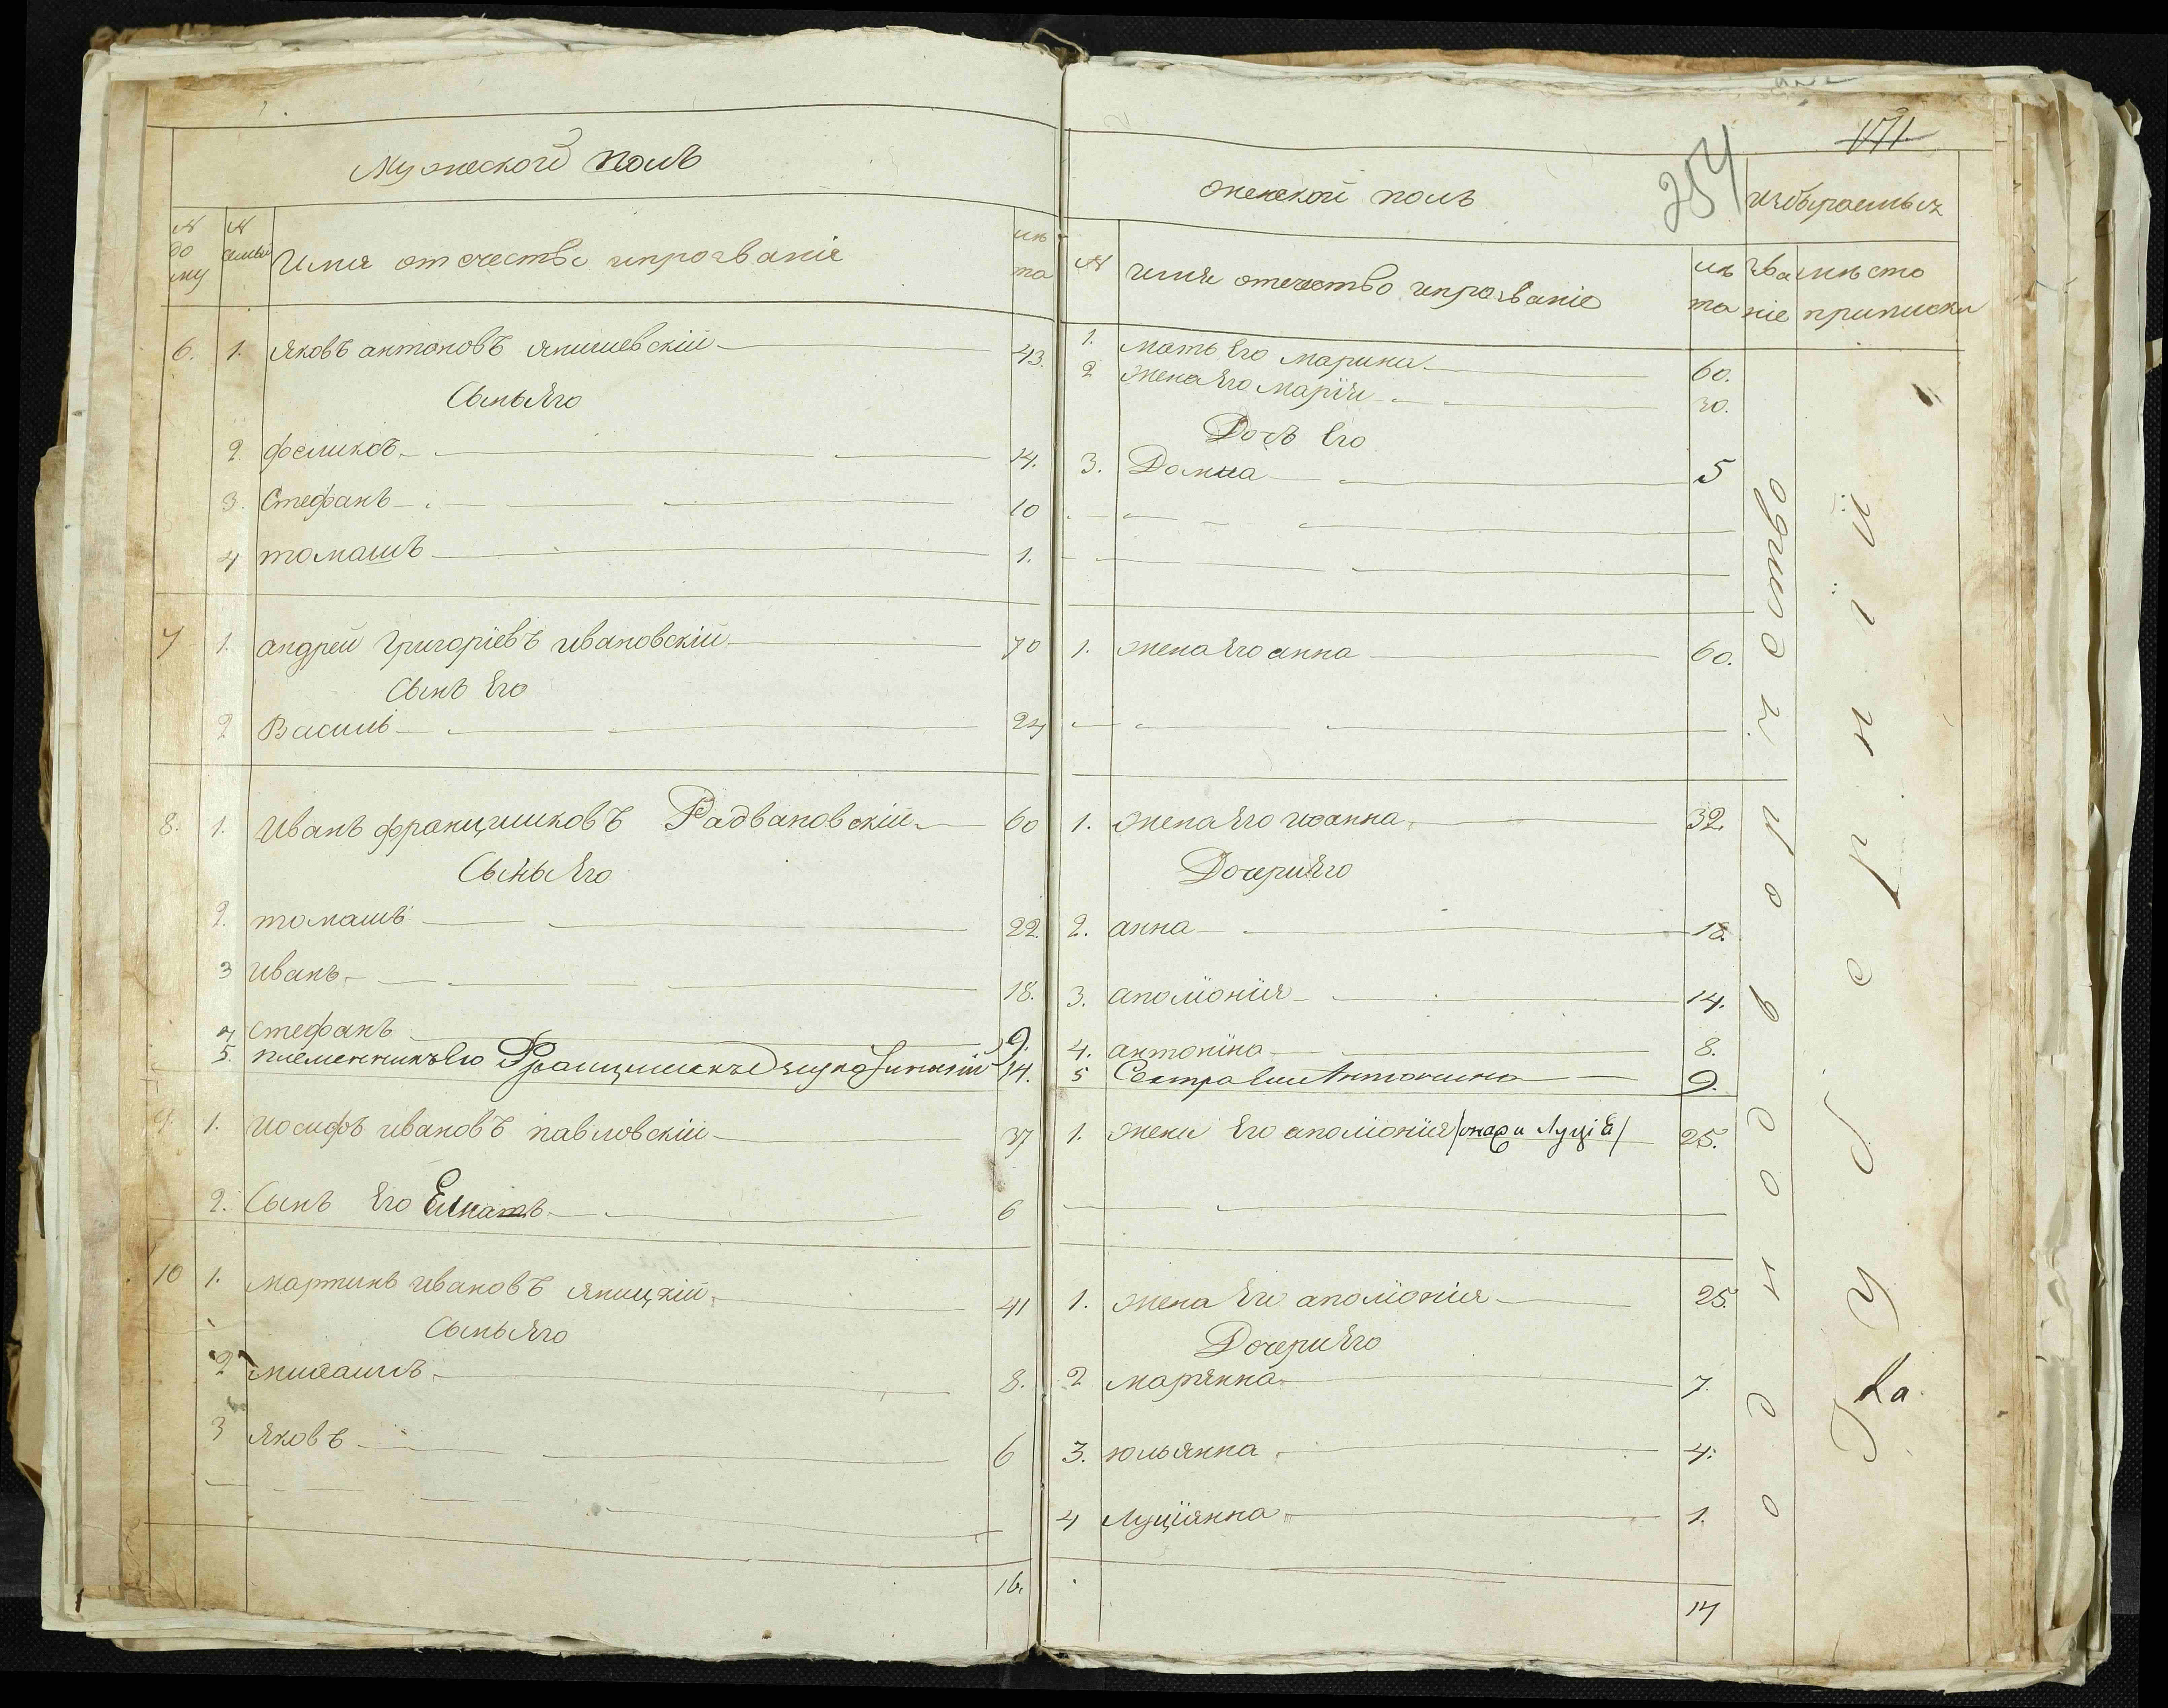 Мужеской полъ
№ до му
№ семьи
Имя отечество ипрозваніе
лѣ та
6. 1. яковъ антоновъ янишевскій 43.
Сыны Его
2. феликсъ 14.
3. Стефанъ 10
4 томашъ 1.
7 1. андрей григоріевъ ивановскій 70
Сынъ Его
2 Василь 24
8. 1. Иванъ францишковъ Радвановскій 60
Сыны Его
2. томашъ 22.
3 Иванъ 18.
4 стефанъ 9.
5. племенникъ Его Францишекъ 14.
9. 1. Иосифъ ивановъ павловскій 37
2. Сынъ Его 6
10 1. мартинъ ивановъ яницкій 41
Сыны Его
2 8.
3 яковъ 6
16.
171.
254
женской полъ
избираемыхъ
№ имя отечество ипрозваніе
лѣ та
зва ніе
мѣсто приписки
1. мать Его марина 60.
2 жена Его марія 30.
Дочь Его
3. Домна 5
1. жена Его анна 60.
1. жена Его иоанна 32.
Дочери Его
2. анна 18.
3. аполіонія 14.
4. антонина 8.
5 Сестра Антонина 9.
1. жена Его аполіонія /она же и Луція/ 25.
1. жена Его аполіонія 25.
Дочери Его
2 марянна 7.
3. юльянна 4.
4 Луціянна 1.
14
однодворчество
Губерній